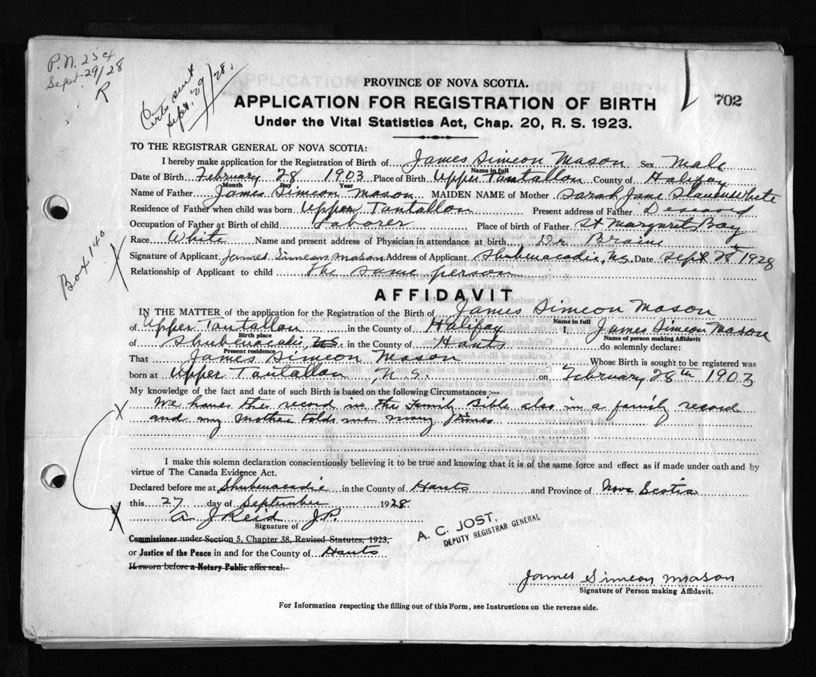 P.N. 254
Sept-29/28
R
Certs sent
Sept. 29/28.
PROVINCE OF NOVA SCOTIA.
702
APPLICATION FOR REGISTRATION OF BIRTH
Under the Vital Statistics Act, Chap. 20, R. S. 1923.
TO THE REGISTRAR GENERAL OF NOVA SCOTIA:
I hereby make application for the Registration of Birth of James Simeon Mason Sex Male
Name in full
Date of Birth February 28 1903 Place of Birth Upper Tantallon County of Halifax
Month Day Year
Name of Father James Simeon Mason MAIDEN NAME of Mother Sarah Jane
Residence of Father when child was born Upper Tantallon Present address of Father
Occupation of Father at Birth of child Laborer Place of birth of Father St Margarets Bay
Race White Name and present address of Physician in attendance at birth Dr Braine
Signature of Applicant James Simeon Mason Address of Applicant Shubenacadie, N.S. Date Sept 28th 1928
Relationship of Applicant to child The same person
Box 140
AFFIDAVIT
IN THE MATTER of the application for the Registration of the Birth of James Simeon Mason
Name in full
of Upper Tantallon in the County of Halifax I, James Simeon Mason
Birth place Name of person making Affidavit
of Shubenacadie, in the County of Hants do solemnly declare:
Present residence
That James Simeon Mason Whose Birth is sought to be registered was
born at Upper Tantallon N.S. on February 28th 1903
My knowledge of the fact and date of such Birth is based on the following Circumstances :—
X We have the record in the Family Bible also in a family record
and my Mother told me many times
I make this solemn declaration conscientiously believing it to be true and knowing that it is of the same force and effect as if made under oath and by
virtue of The Canada Evidence Act.
Declared before me at Shubenacadie in the County of Hants and Province of Nova Scotia
this 27 day of September 1928
X A J Reid J.P.
Signature of
A. C. JOST,
DEPUTY REGISTRAR GENERAL
Commissioner under Section 5, Chapter 38, Revised Statutes, 1923,
or Justice of the Peace in and for the County of Hants
If sworn before a Notary Public affix seal.
James Simeon Mason
Signature of Person making Affidavit.
For Information respecting the filling out of this Form, see Instructions on the reverse side.